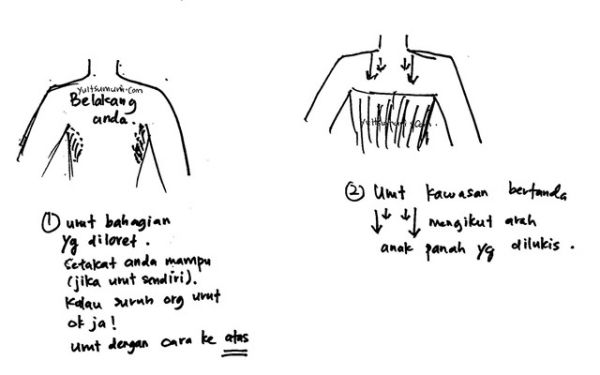 yultsumurni.com
Belakang
anda.
① urut bahagian
yg diloret.
setakat anda mampu
(jika urut sendiri).
Kalau suruh org urut
ok ja!
urut dengan cara ke atas
② Urut kawasan bertanda
↓↓↓↓ mengikut arah
anak panah yg dilukis.